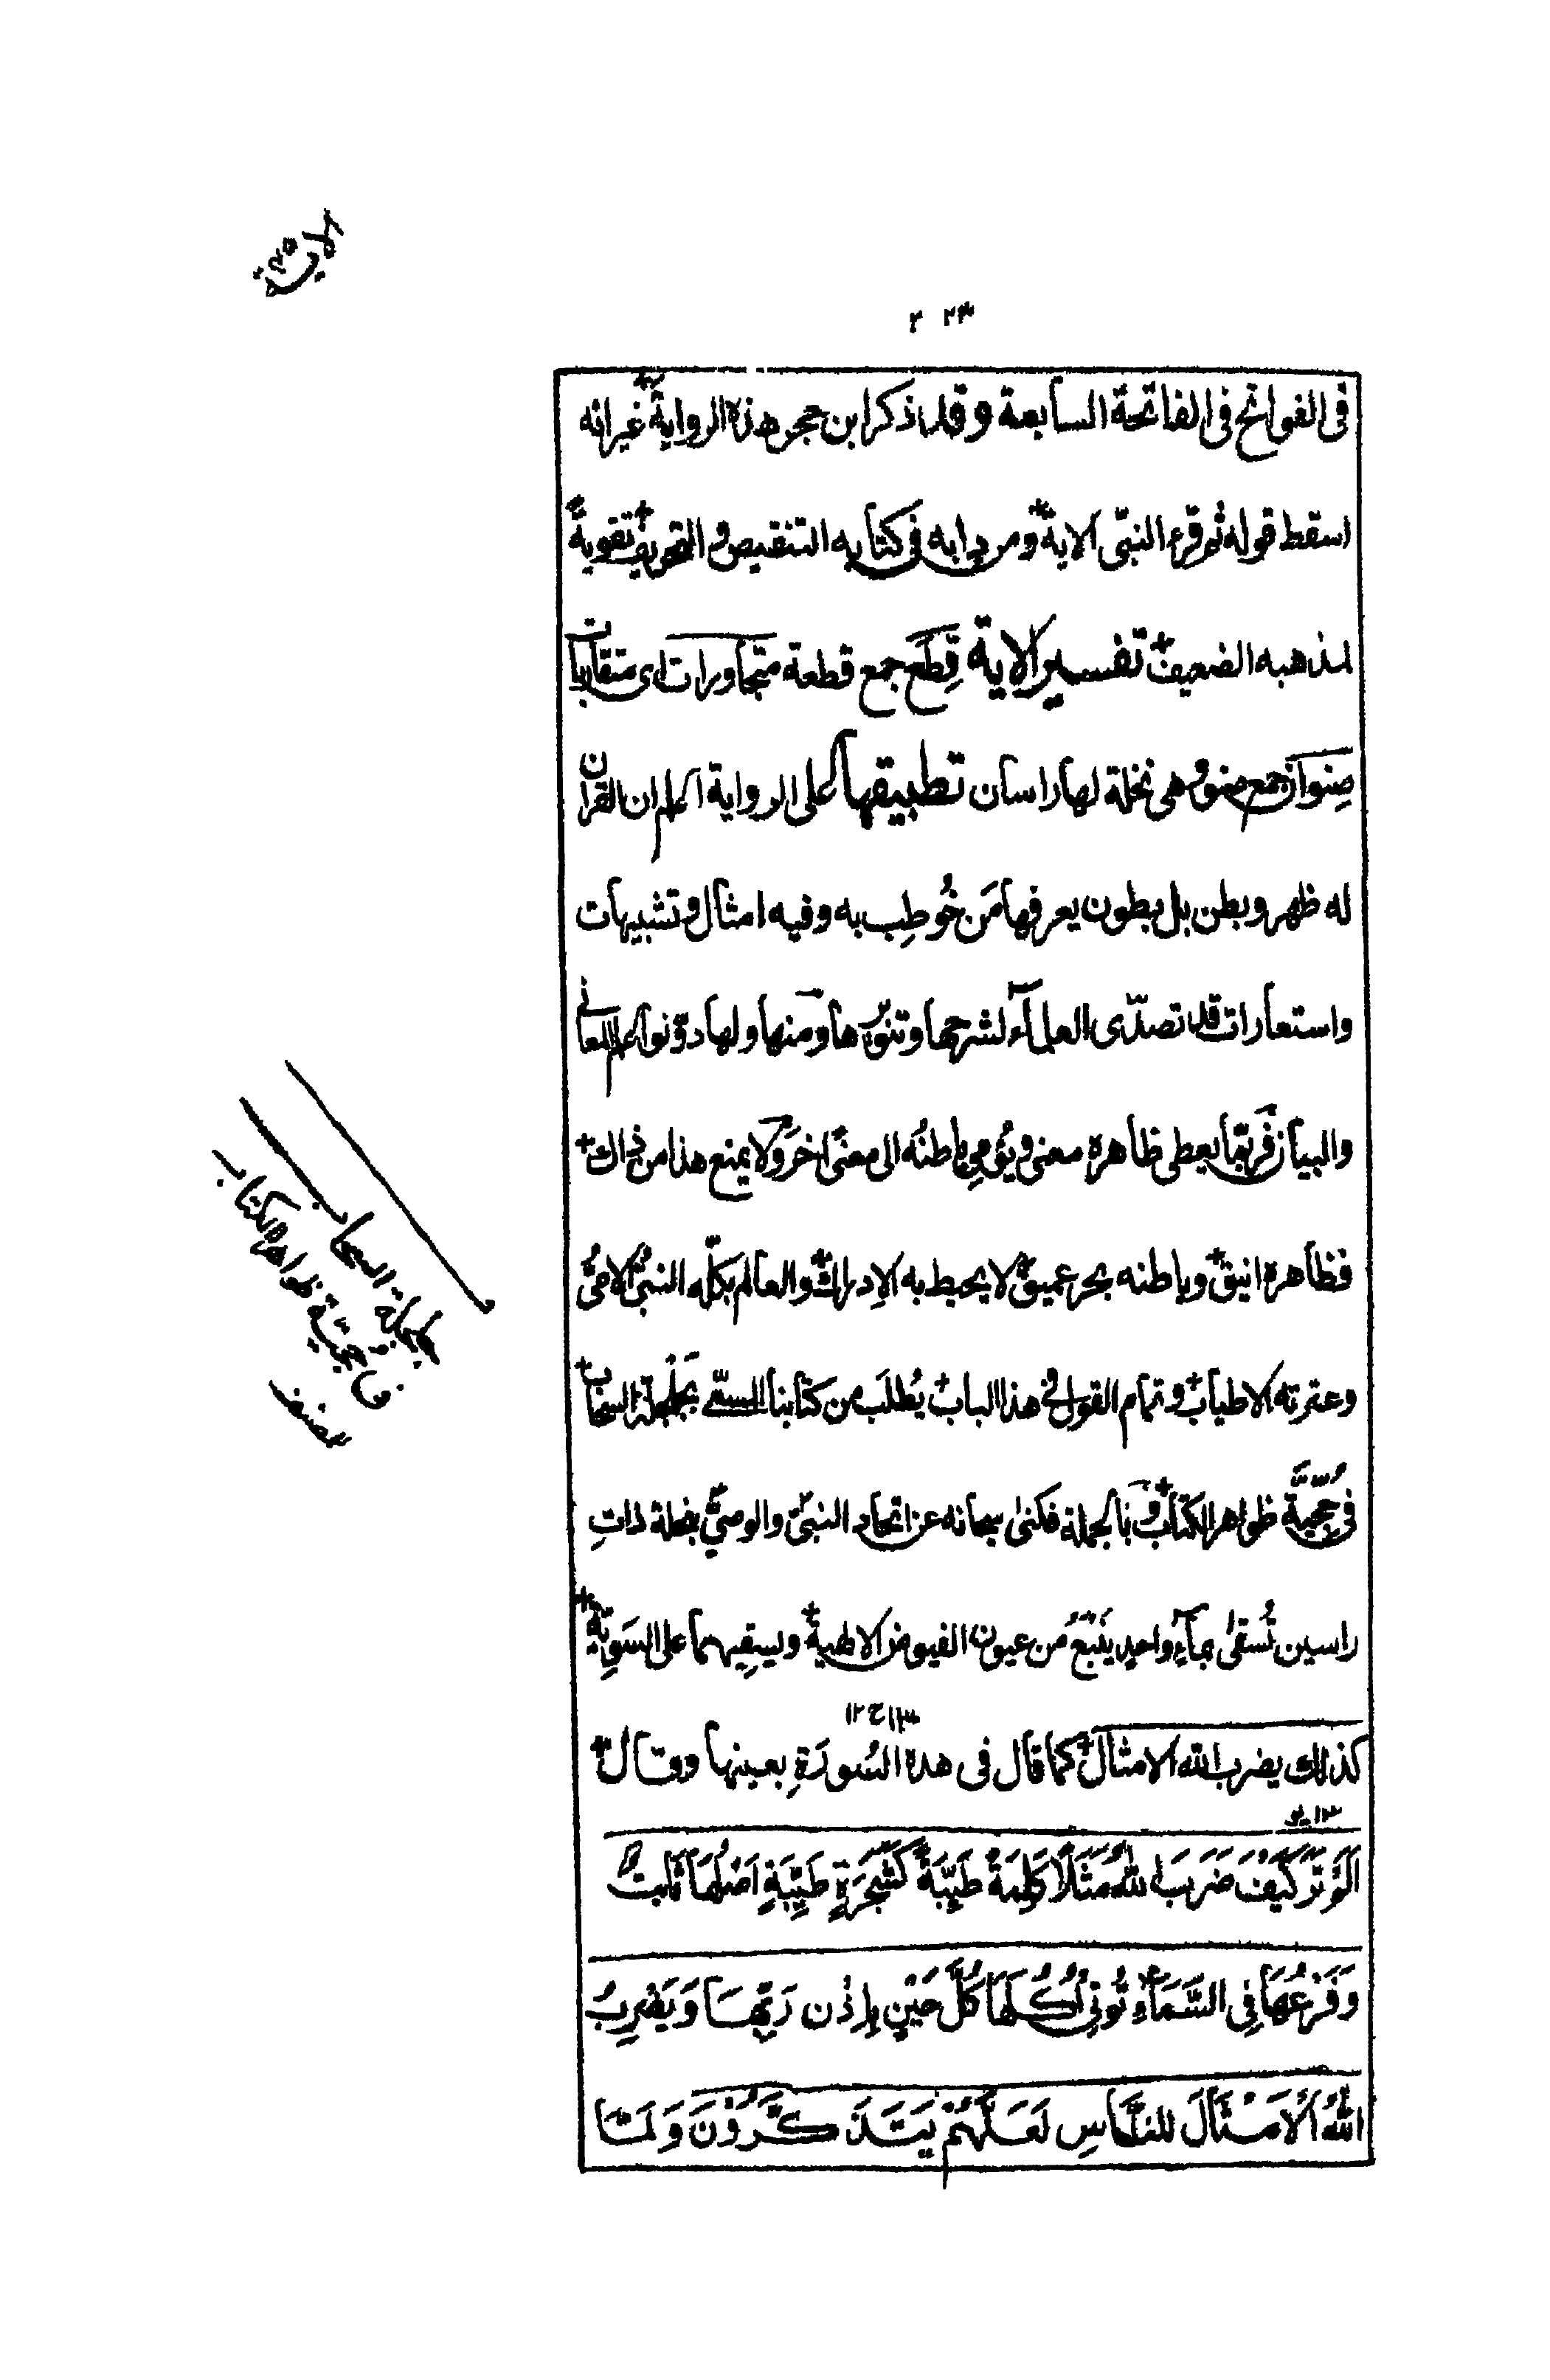 ۲۲۳
في الفواتح في الفاتحة السابعة وقد ذكر ابن حجر هذه الرواية غير انه
اسقط قوله ثم قرء النبيّ الاية ومن دابه في كتابه التنقيص والتحريف تقويةً
لمذهبه الضعيف تفسير الاية قِطَع جمع قطعة متجاورات اى متقاربات
صِنوان جمع صنو وهي نخلة لها راسان تطبيقها على الرواية اعلم ان القران
له ظهر وبطن بل بطون يعرفها مَن خُوطِب به وفيه امثال وتشبيهات
واستعارات قد تصدّى العلمآء لشرحها وتنويرها ومنها ولها دوّنوا علم المعاني
والبيان فَربّما يعطى ظاهره معنى ويُؤمى باطنُه الى معنًى اخرَ ولا يمنع هذا من ذاك
فظاهره انيق وباطنه بحر عميق لا يحيط به الادراك والعالم بكلّه النبيُّ الامّيُّ
وعترته الاطياب وتمام القول في هذا الباب يُطلَب من كتابنا المسمّى بجلجلة السحاب
في حُجّيّة ظواهر الكتاب وبالجملة فكنى سبحانه عن اتحاد النبيّ والوصيّ بنخلة ذاتِ
راسين تُسقى بمآءٍ واحدٍ ينبَعُ من عيون الفيوض الالهية ويسقيهما على السَوِيّة
كذلك يضرب الله الامثال كما قال في هذه السُورَةِ بعينها وقال
اَلَمْ تَرَ كَيْفَ ضَرَبَ اللهُ مَثَلًا كَلِمَةً طَيِّبَةً كَشَجَرَةٍ طَيِّبَةٍ اَصْلُهَا ثَابِتٌ
وَفَرْعُهَا فِي السَّمَآءِ تُؤتِي اُكُلَهَا كُلَّ حِيْنٍ بِاِذْنِ رَبِّهَا وَيَضْرِبُ
اللهُ الاَمْثَالَ لِلنَّاسِ لَعَلَّهُمْ يَتَذَكَّرُوْنَ وَلَمَّا
جلجلة السحاب
في حجية ظواهر الكتاب